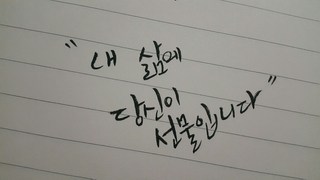 "내 삶에
당신이
선물입니다"